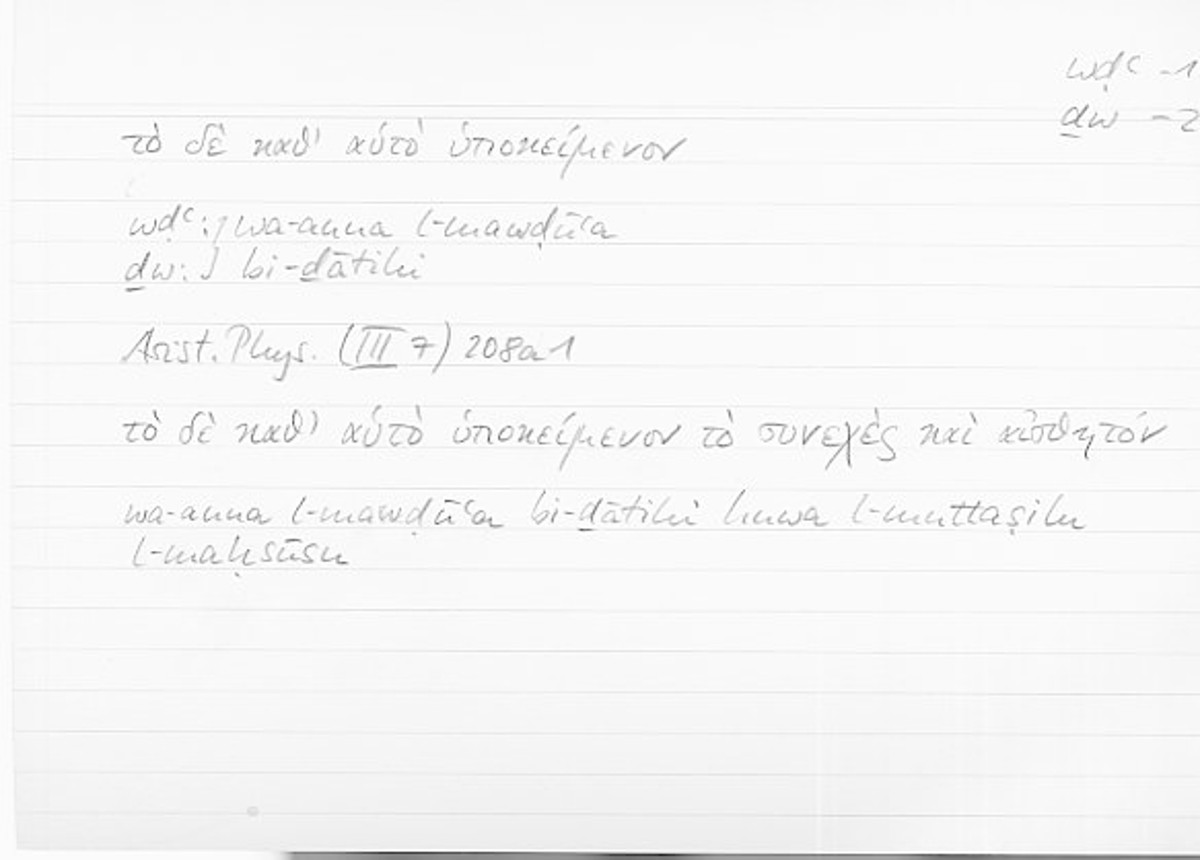 wḍʿ -1
ḏw -2
τὸ δὲ καθ' αὑτὸ ὑποκείμενον
wḍʿ: ] wa-anna l-mawḍūʿa
ḏw: ] bi-ḏātihi
Arist. Phys. (III 7) 208a1
τὸ δὲ καθ' αὑτὸ ὑποκείμενον τὸ συνεχὲς καὶ αἰσθητόν
wa-anna l-mawḍūʿa bi-ḏātihi huwa l-muttaṣilu
l-maḥsūsu